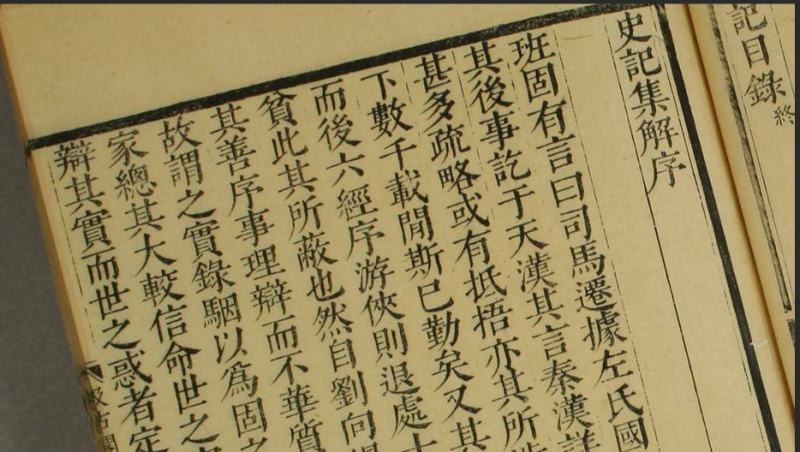 記目錄終
史記集解序
班固有言曰司馬遷據左氏國
其後事訖于天漢其言秦漢詳
甚多疏略或有抵捂亦其所
下數千載閒斯已勤矣又其
而後六經序游俠則退處
貧此其所蔽也然自劉向
其善序事理辯而不華質
故謂之實錄駰以爲固之
家總其大較信命世之
辯其實而世之惑者定
汲古閣